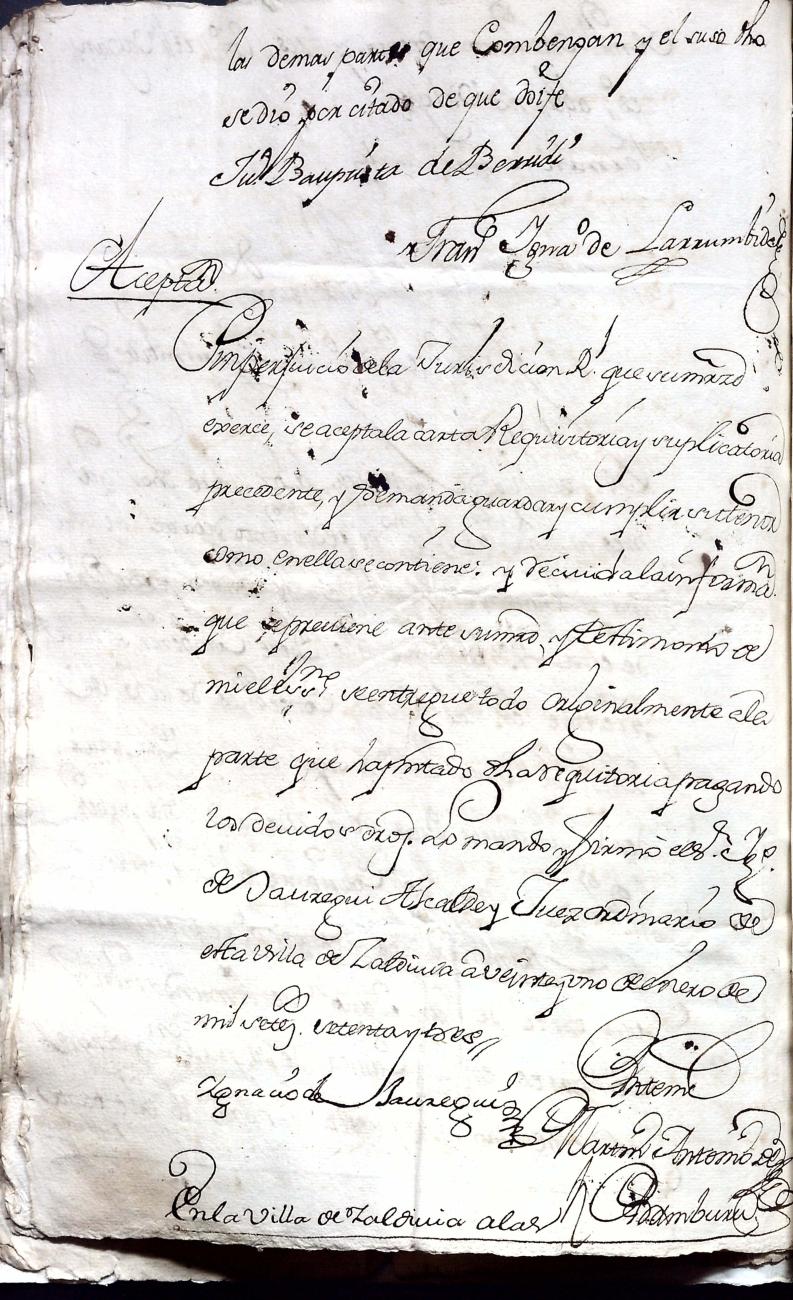 las demas partes que Combengan y el suso dho
se dio por citado de que doi fe
Juº Bauptista de Berridi
Franº Ignaº de Larrumbide
Aceptaⁿ
Sin perjuicio de la Jurisdicion Rˡ que su mrzd
exerce, se acepta la carta Requisitoria y suplicatoria
precedente, y se manda guardar y cumplir su tenor
como en ella se contiene: y recivida la informaⁿ
que se previene ante su mrzd, y testimonio de
mi el essⁿᵒ se entregue todo originalmente a la
parte que ha pntado dha requitoria pagando
los devidos droş. Lo mando y firmo el sʳ Igº
de Jauregui Alcalde y Juez ordinario de
esta villa de Zaldivia a veinte y uno de Enero de
mil seteş. setenta y tres
Ignacio de Jauregui
Ante mi
Martin Antonio de
Aramburu
En la Villa de Zaldivia a las